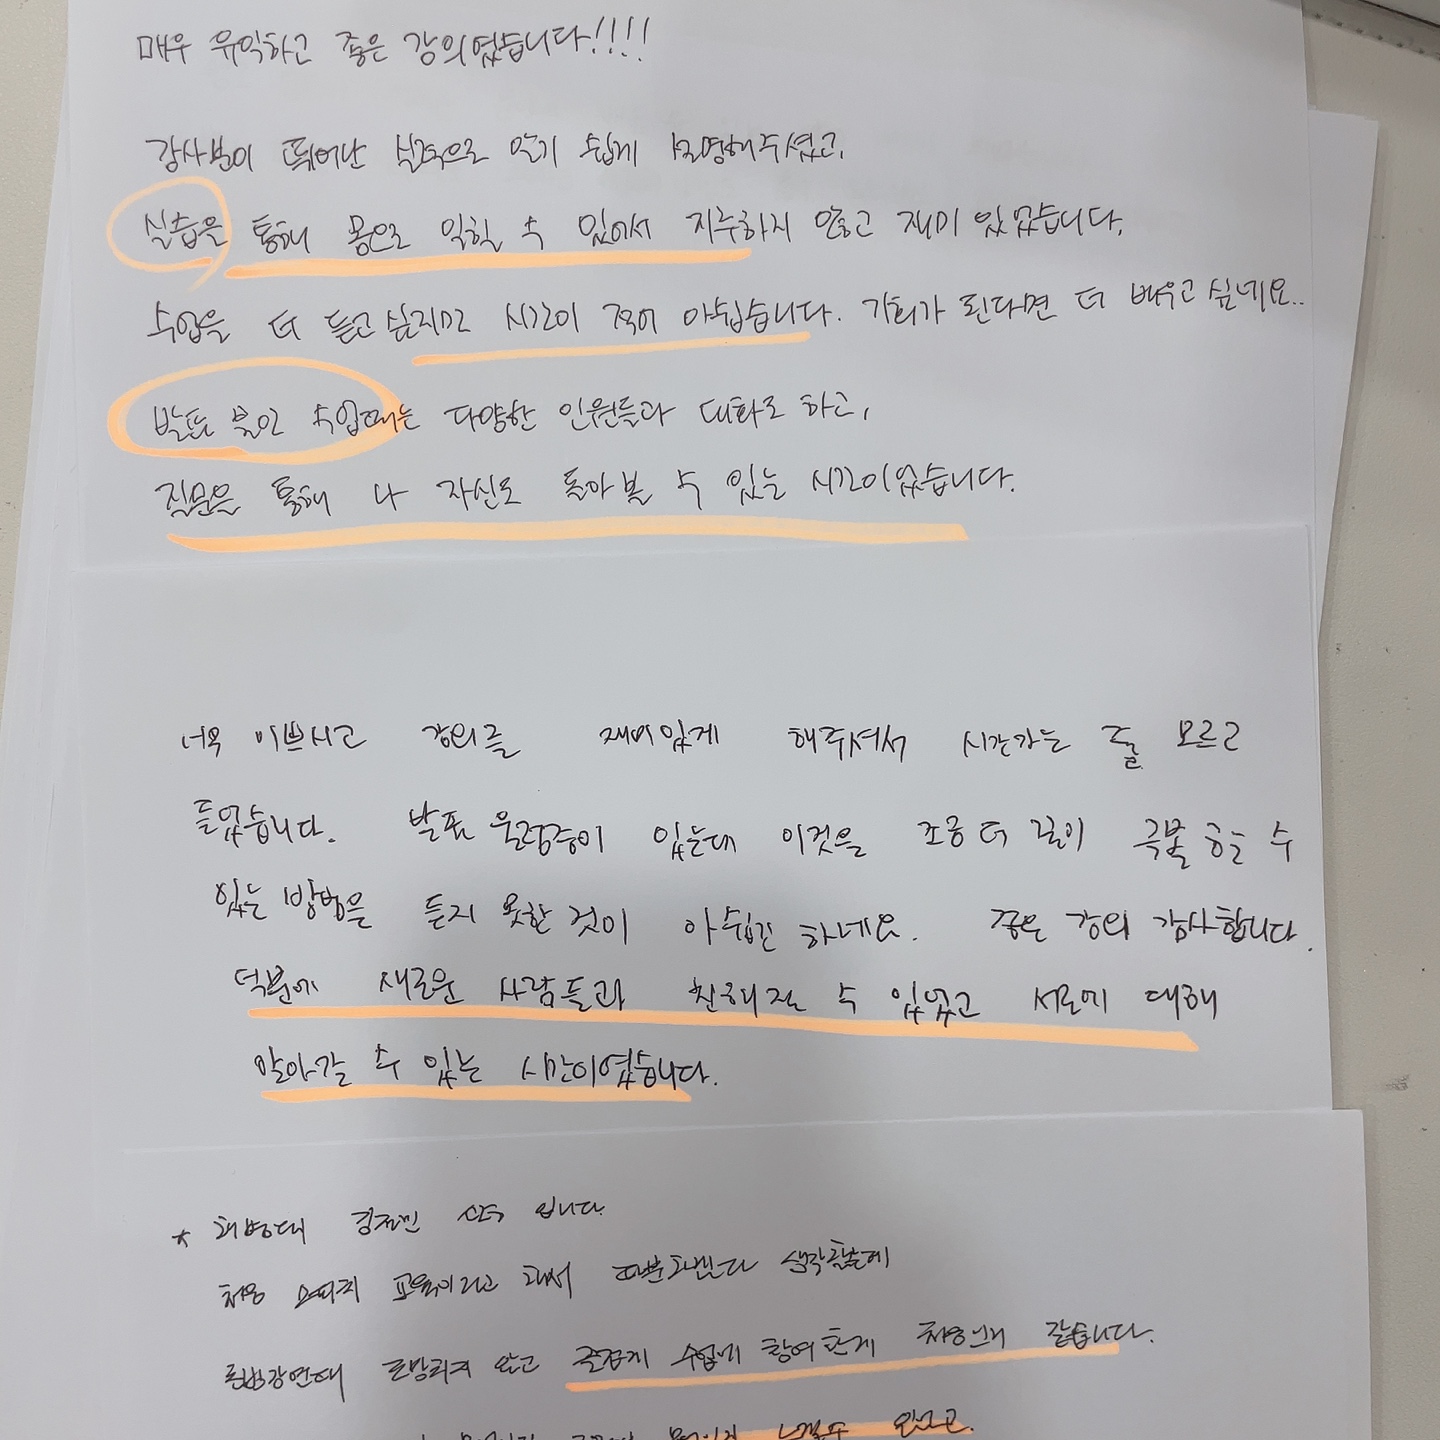 매우 유익하고 좋은 강의였습니다!!!!
강사분이 뛰어난 실력으로 알기 쉽게 설명해주셨고,
실습을 통해 몸으로 익힐 수 있어서 지루하지 않고 재미 있었습니다.
수업을 더 듣고 싶지만 시간이 적어 아쉽습니다. 기회가 된다면 더 배우고 싶네요..
발표 불안 수업때는 다양한 인원들과 대화도 하고,
질문을 통해 나 자신도 돌아볼 수 있는 시간이었습니다.
너무 이쁘시고 강의를 재미있게 해주셔서 시간가는 줄 모르고
들었습니다. 발표 울렁증이 있는데 이것을 조금 더 깊이 극복 하는 수
있는 방법을 듣지 못한 것이 아쉽긴 하네요. 좋은 강의 감사합니다.
덕분에 새로운 사람들과 친해질 수 있었고 서로에 대해
알아갈 수 있는 시간이였습니다.
* 입니다
처음 스피치 교육이라고 해서 생각했는데
않고 즐겁게 수업에 참여한게 처음인거 같습니다.